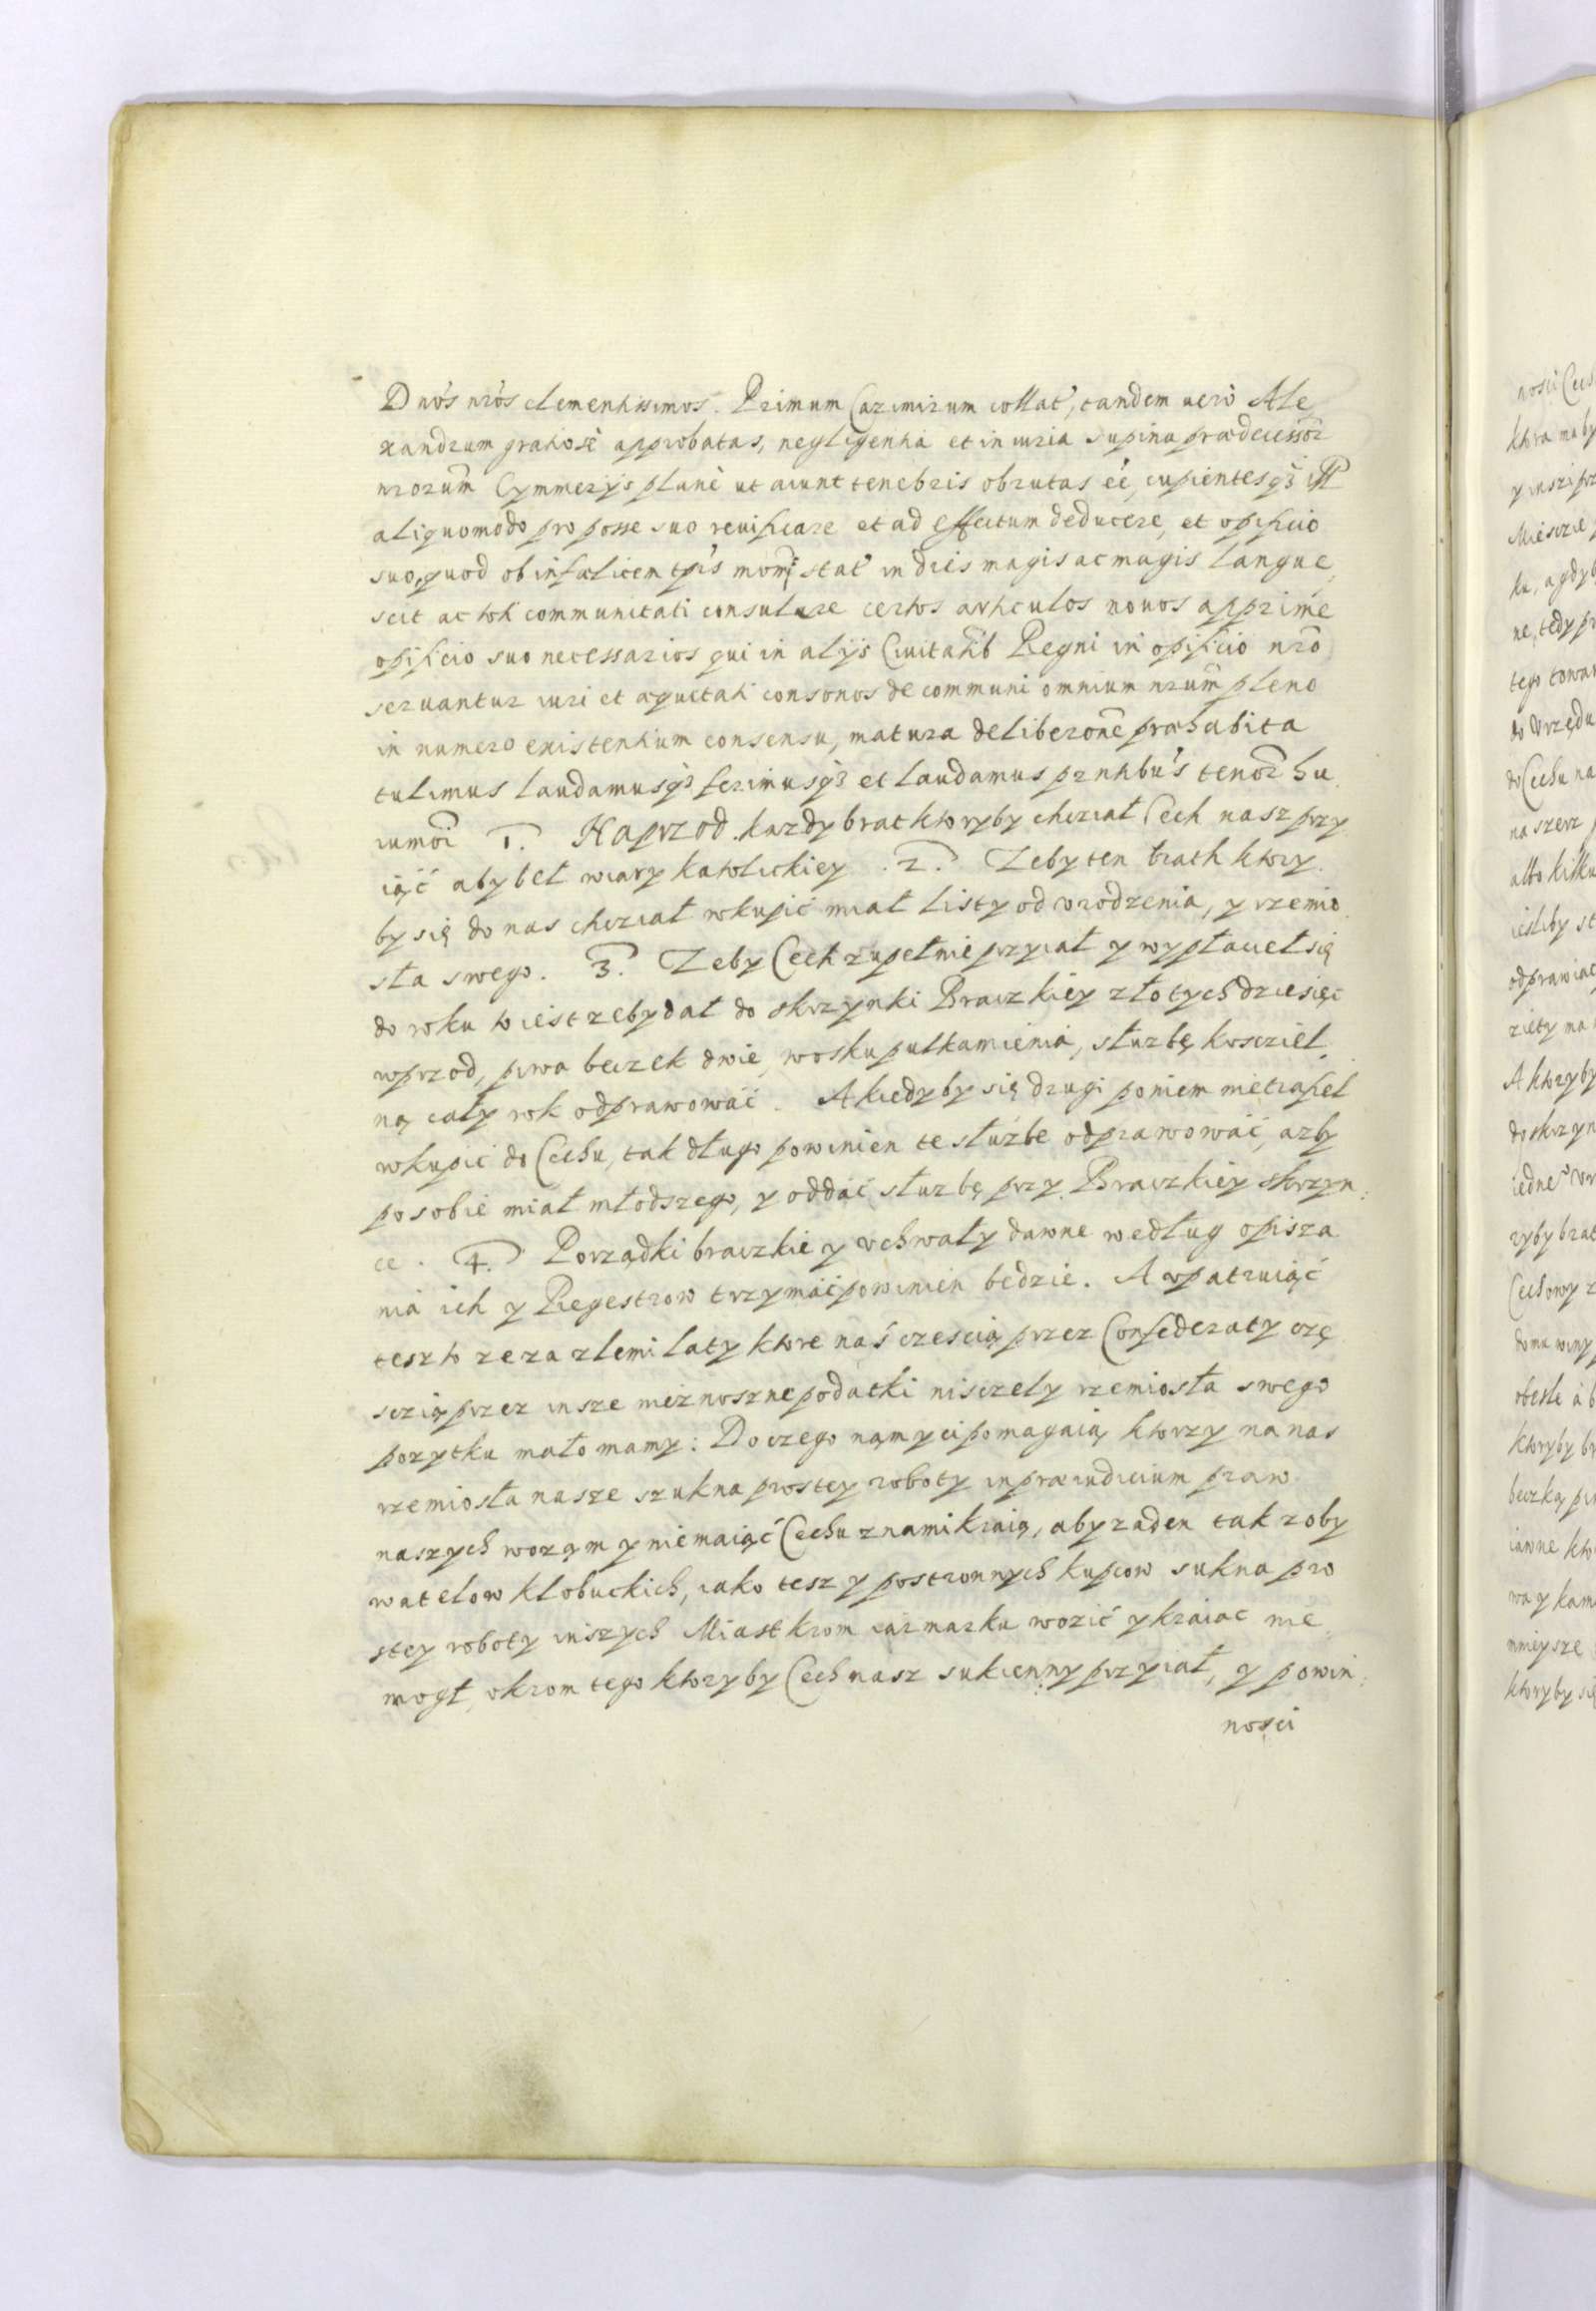 Dnos nros clementissimos. Primum Cazimirum collat, tandem uero Ale
xandrum gratiose approbatas, negligentia et in iuria supina prædecessor
nrorum Cymmerys plane ut aiunt tenebris obrutas eé, cupientesq3
aliquomodo pro posse suo reuificare et ad effectum deducere, et opificio
suo, quod ob infælicem tpis stat in dies magis ac magis langue
scit ac toti communitati consulere certos articulos nouos apprime
opificio suo necessarios qui in alijs Ciuitatib Regni in opificio nro
seruantur iuri et æquitati consonos de communi omnium nrum pleno
in numero existentium consensu, matura deliberone præhabita
tulimus laudamusq3 ferimusq3 et laudamus pzntibus tenor hu
iusmoi 1. Naprzod kazdy brat ktoryby chcział Cech nasz przy
iąć aby beł wiary katolickiey. 2. Zeby ten brath ktory
by się do nas chcział wkupić miał listy od vrodzenia, y rzemio
sła swego. 3. Zeby Cech zupełnie przyiał y wypłaciel się
do roku to iest zeby dał do skrzynki Braczkiey złotych dziesięc
wprzod, piwa beczek dwie, wosku pułkamienia, słuzbę kosciel
ną cały rok odprawować. A kiedyby się drugi poniem nietrafieł
wkupić do Cechu, tak długo powinien te słuzbe odprawować, azby
po sobie miał młodszego, y oddać słuzbę przy Braczkiey skrzyn
ce. 4. Porządki braczkie y vchwały dawne według opisza
nia ich y Regestrow trzymać powinien bedzie. A vpatruiąć
tesz to ze za zlemi laty ktore nas czescią przez Confederaty czę
sczią przez insze nieznoszne podatki nisczely rzemiosła swego
pozytku mało mamy: Do czego nąm y ci pomagaią ktorzy na nas
rzemiosła nasze szukna prostey roboty in præiudicium praw
naszych woząm y niemaiąć Cechu znami kraią, aby zaden tak zoby
watelow kłobuckich, iako tesz y postronnych kupcow sukna pro
stey roboty inszych Miast krom iarmarku wozić y kraiac nie
mogł, okrom tego ktoryby Cech nasz sukienny przyiał, y powin
nosci